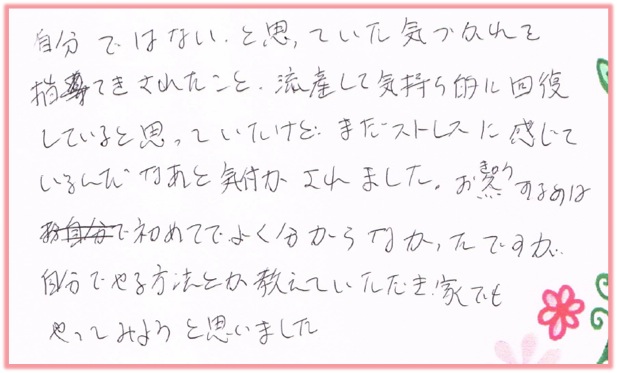 自分ではない、と思っていた気づかれを
指てきされたこと、流産して気持ち的に回復
していると思っていたけど、まだストレスに感じて
いるんだなあと気付かされました。お灸するのは
初めてでよく分からなかったですが、
自分でやる方法とか教えていただき、家でも
やってみようと思いました